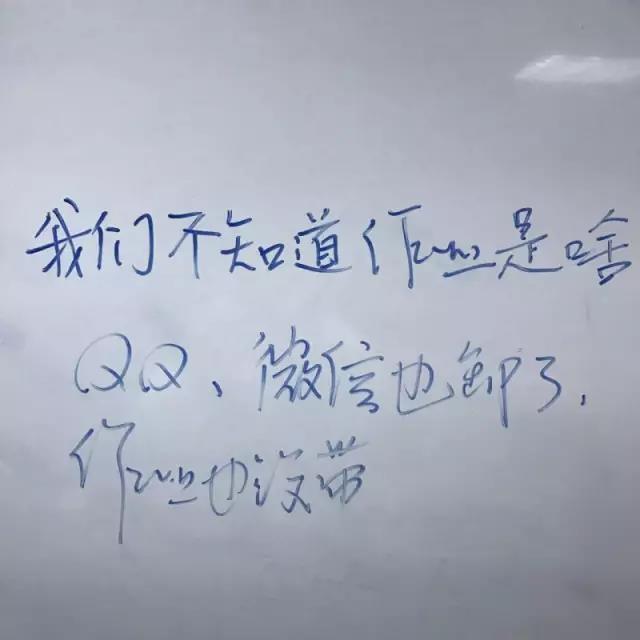 我们不知道作业是啥
QQ、微信也卸了,
作业也没带